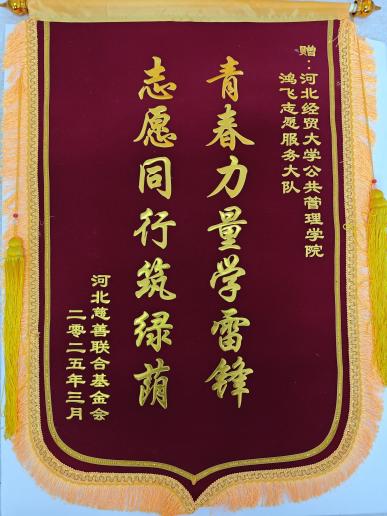 赠：河北经贸大学公共管理学院
鸿飞志愿服务大队
青春力量学雷锋
志愿同行筑绿荫
河北慈善联合基金会
二零二五年三月